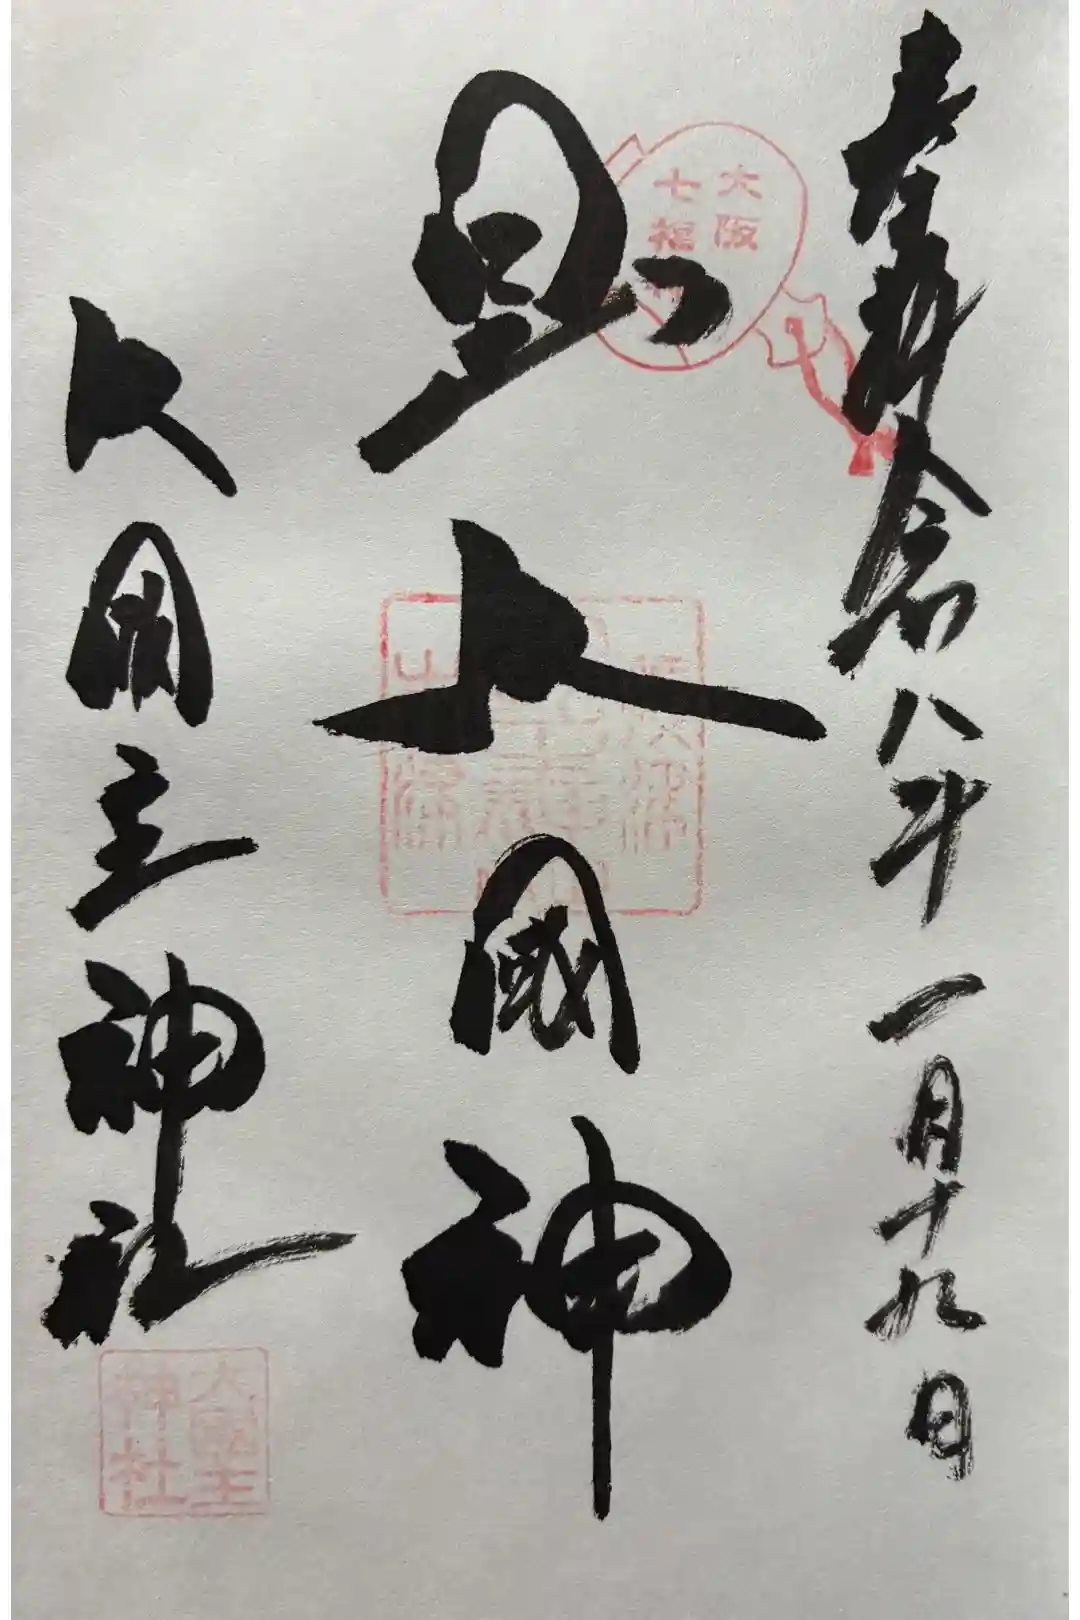 奉拝 令和八年 一月十九日
大阪
七福
日出大國神
大国主神社
大國主
神社